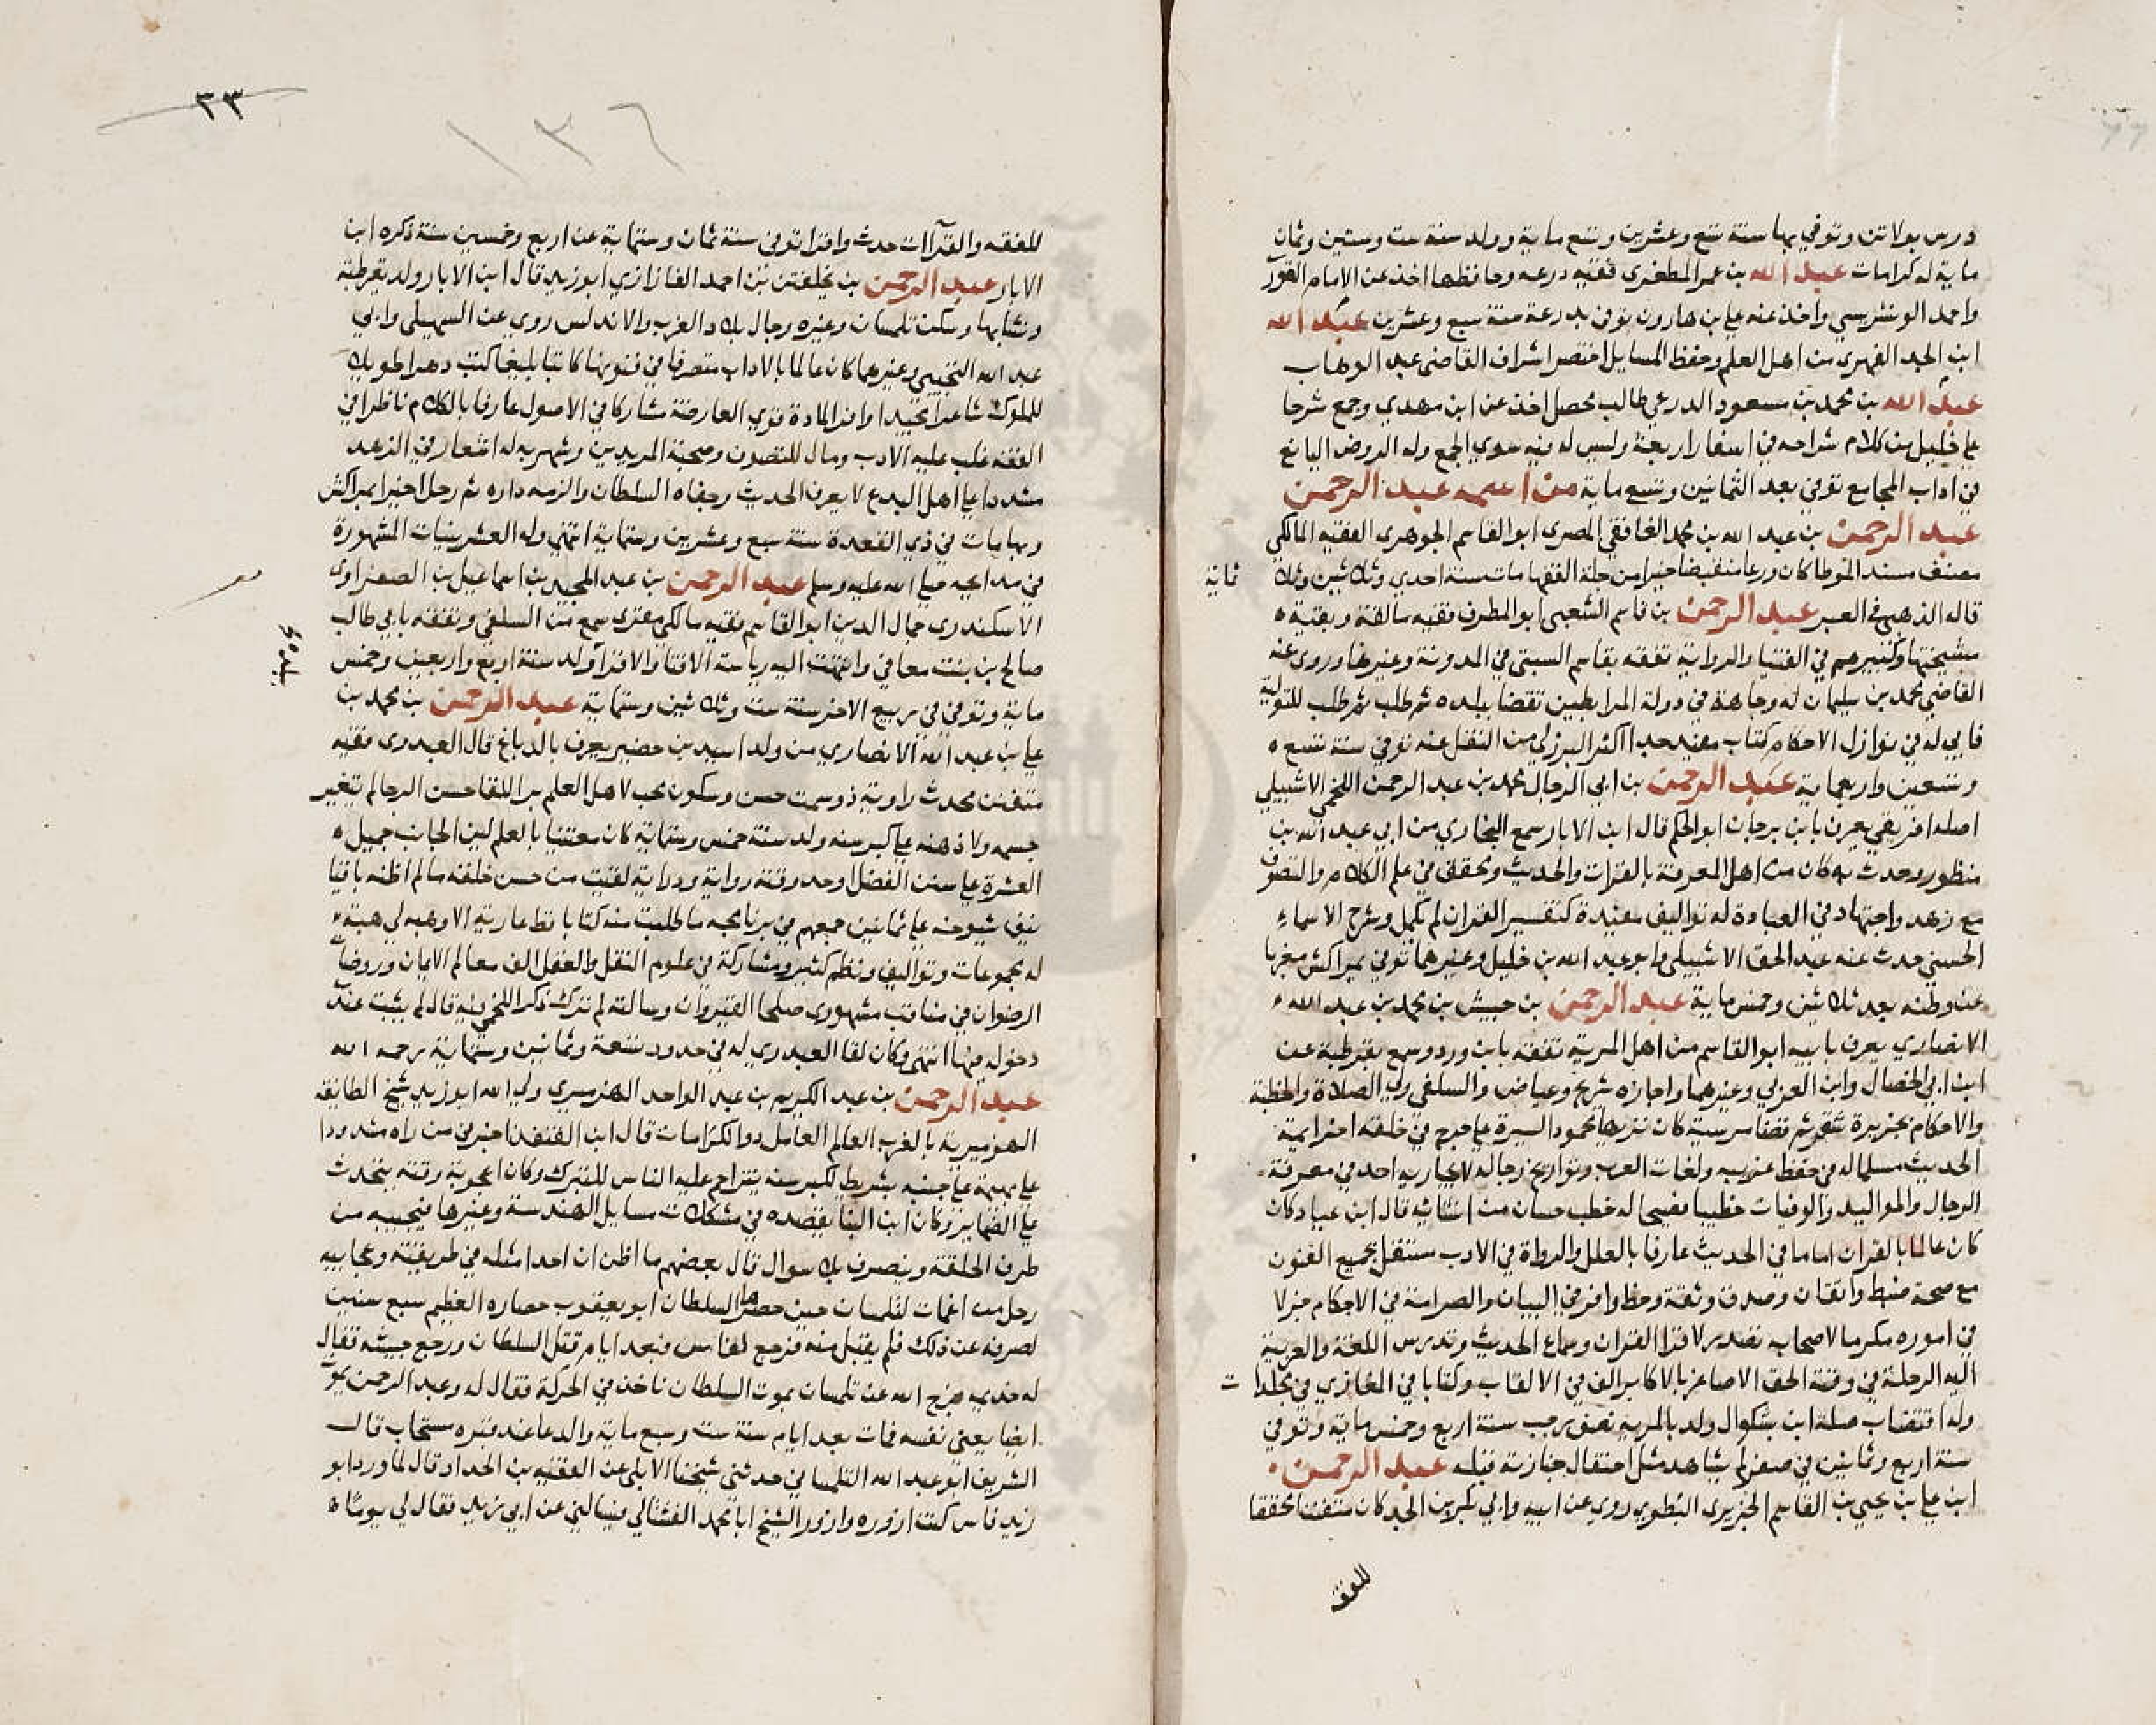 درس بولاتن وتوفي بها سنة تسع وعشرين وتسع ماية وولد سنة ست وستين وثمان
ماية له كرامات عبد الله بن عمر المطغرى فقيه درعه وحافظها اخذ عن الامام القورى
واحمد الونشريسي واخذ عنه علي بن هارون توفى بدرعة سنة سبع وعشرين عبد الله
ابن الجد الفهرى من اهل العلم وحفظ المسايل اختصر اشراف القاضى عبد الوهاب
عبد الله بن محمد بن مسعود الدرعي طالب محصل اخذ عن ابن مهدي وجمع شرحا
علي خليل من كلام شراحه في اسفار اربعة وليس له فيه سوي الجمع وله الروض اليانع
في اداب المجامع توفي بعد الثمانين وتسع ماية من اسمه عبد الرحمن
عبد الرحمن بن عبد الله بن محمد الغافقي المصرى ابو القاسم الجوهرى الفقيه المالكي
مصنف مسند الموطا كان ورعا منقبضا خيرا من جلة الفقها مات سنة احدي وثلاثين وثلاث
ثماية
قاله الذهبي في العبر عبد الرحمن بن قاسم الشعبى ابو المطرف فقيه مالقة وبقية
مشيختها وكبيرهم في الفتيا والرواية تفقه بقاسم السبتي في المدونة وغيرها وروى عنه
القاضي محمد بن سليمان له وجاهة في دولة المرابطين تقضا ببلده ثم طلب ثم طلب للتولية
فابي له في نوازل الاحكام كتاب مفيد جدا اكثر البرزلي من النقل عنه توفي سنة تسع
وتسعين واربعماية عبد الرحمن بن ابي الرجال محمد بن عبد الرحمن اللخمي الاشبيلي
اصله افريقي يعرف بابن برجان ابو الحكم قال ابن الابار سمع البخاري من ابي عبد الله بن
منظور وحدث به كان من اهل المعرفة بالقرات والحديث وتحقق في علم الكلام والتصوف
مع زهد واجتهاد في العبادة له تواليف مفيدة كتفسير القران لم يكمل وشرح الاسماء
الحسنى حدث عنه عبد الحق الاشبيلى وابو عبد الله بن خليل وغيرهما توفي بمراكش مغربا
عن وطنه بعد ثلاثين وخمس ماية عبد الرحمن بن حبيش بن محمد بن عبد الله
الانصاري يعرف بابيه ابو القاسم من اهل المرية تفقه بابن ورد وسمع بقرطبة عن
ابن ابي الخصال وابن العربي وغيرهما واجازه شريح وعياض والسلفى ولي الصلاة والخطبة
والاحكام بجزيرة شقر ثم قضا مرسية كان نزيها محمود السيرة علي حرج في خلقه اخر ايمة
الحديث مسلما له في حفظ غريبه ولغات العرب وتواريخ رجاله لا يجاريه احد في معرفة
الرجال والمواليد والوفيات خطيبا فصيحا له خطب حسان من انشائه قال ابن عياد كان
كان عالما بالقران اماما في الحديث عارفا بالعلل والرواة في الادب مستقل بجميع الفنون
مع صحة ضبط واتقان وصدق وثقة وحظ وافر في البيان والصرامة في الاحكام جزلا
في اموره مكرما لاصحابه تصدر لاقرا القران وسماع الحديث وتدريس اللغة والعربية
اليه الرحلة في وقته الحق الاصاغر بالاكابر الف في الالقاب وكتابا في المغازي في مجلدات
وله اقتضاب صلة ابن بشكوال ولد بالمرية نصف رجب سنة اربع وخمس ماية وتوفي
سنة اربع وثمانين في صفر لم يشاهد مثل احتفال جنازته قبله عبد الرحمن
ابن علي بن يحيي بن القاسم الجزيرى البطوي روي عن ابيه وابي بكر بن الجد كان متفننا محققا
للفقه
٣٣
١٣٦
للفقه والقراات حدث واقرا توفى سنة ثمان وستماية عن اربع وخمسين سنة ذكره ابن
الابار عبد الرحمن بن يخلفتن بن احمد الفازازي ابو زيد قال ابن الابار ولد بقرطبة
ونشا بها وسكن تلمسان وغيره وجال ببلاد الغرب والاندلس روي عن السهيلي وابي
عبد الله التجيبي وغيرهما كان عالما بالاداب متصرفا في فنونها كاتبا بليغا كتب دهرا طويلا
للملوك شاعرا مجيدا وافر المادة قوي العارضة مشاركا في الاصول عارفا بالكلام ناظرا في
الفقه غلب عليه الادب ومال للتصوف وصحبة المريدين وشهر به له اشعار في الزهد
مشددا علي اهل البدع لا يعرف الحديث وجفاه السلطان والزمه داره ثم رحل اخيرا بمراكش
وبها مات في ذي القعدة سنة سبع وعشرين وستماية انتهى وله العشرينيات المشهورة
في مداحيه صلي الله عليه وسلم عبد الرحمن بن عبد المجيد بن اسماعيل بن الصفراوى
الاسكندرى جمال الدين ابو القاسم فقيه مالكى مقرى سمع من السلفي وتفقه بابي طالب
صالح بن بنت معافي وانتهت اليه رياسة الافتا والاقرا ولد سنة اربع واربعين وخمس
ماية وتوفي في ربيع الاخر سنة ست وثلاثين وستماية عبد الرحمن بن محمد بن
علي بن عبد الله الانصاري من ولد اسيد بن حضير يعرف بالدباغ قال العبدرى فقيه
متفنن محدث راوية ذو سمت حسن وسكون محب لاهل العلم بر اللقا حسن الرجا لم يتغير
جسمه ولا ذهنه علي كبر سنه ولد سنة خمس وستماية كان معتنيا بالعلم لين الجانب جميل
العشرة علي سنن الفضل اوحد وقته رواية ودراية لقيت من حسن خلقه ما لم اظنه باقيا
نيف شيوخه علي ثمانين جمعهم في برنامجه ما طلبت منه كتابا قط عارية الا وهبه لي هبة
له مجموعات وتواليف ونظم كثير ومشاركة في علوم النقل والعقل الف معالم الايمان وروضات
الرضوان في مناقب مشهورى صلحا القيروان وسالته لم تركت ذكر اللخمي فيه قال لم يثبت عندي
دخوله فيها انتهى وكان لقا العبدري له في حدود تسعة وثمانين وستماية رحمه الله
عبد الرحمن بن عبد الكريم بن عبد الواحد الهزميري ولي الله ابو زيد شيخ الطايفة
الهزميرية بالغرب العالم العامل ذو الكرامات قال ابن القنفذ اخبرني من راه مشدودا
علي بهيمة علي جنبه بشريط لكبر سنه يتزاحم عليه الناس للتبرك وكان اعجوبة وقته يتحدث
علي الضماير وكان ابن البنا يقصده في مشكلات مسايل الهندسة وغيرها فيجيبه من
طرف الحلقة وينصرف بلا سوال قال بعضهم ما اظن ان احدا مثله في طريقته وعجايبه
رحل من اغمات لتلمسان حين حصرها السلطان ابو يعقوب حصاره العظيم سبع سنين
لصرفه عن ذلك فلم يقبل منه فرجع لفاس فبعد ايام قتل السلطان ورجع جيشه فقال
له خديمه فرج الله عن تلمسان بموت السلطان ناخذ في الحركة فقال له وعبد الرحمن يموت
ايضا يعني نفسه فمات بعد ايام سنة ست وسبع ماية والدعا عند قبره مستجاب قال
الشريف ابو عبد الله التلمساني حدثنى شيخنا الابلى عن الفقيه بن الحداد قال لما ورد ابو
زيد فاس كنت ازوره وازور الشيخ ابا محمد الفشتالي فيسالني عن ابي زيد فقال لي يوما